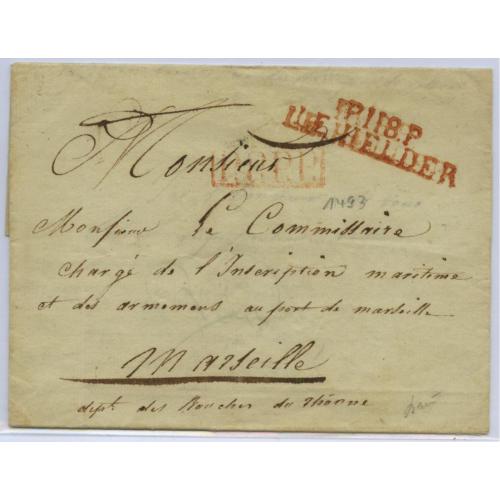 P.118.P.
DEN HELDER
Monsieur
P.P.P.P.
1493
Monsieur Le Commissaire
chargé de l'Inscription maritime
et des armemens au port de marseille
Marseille
dept. des Bouches du Rhône